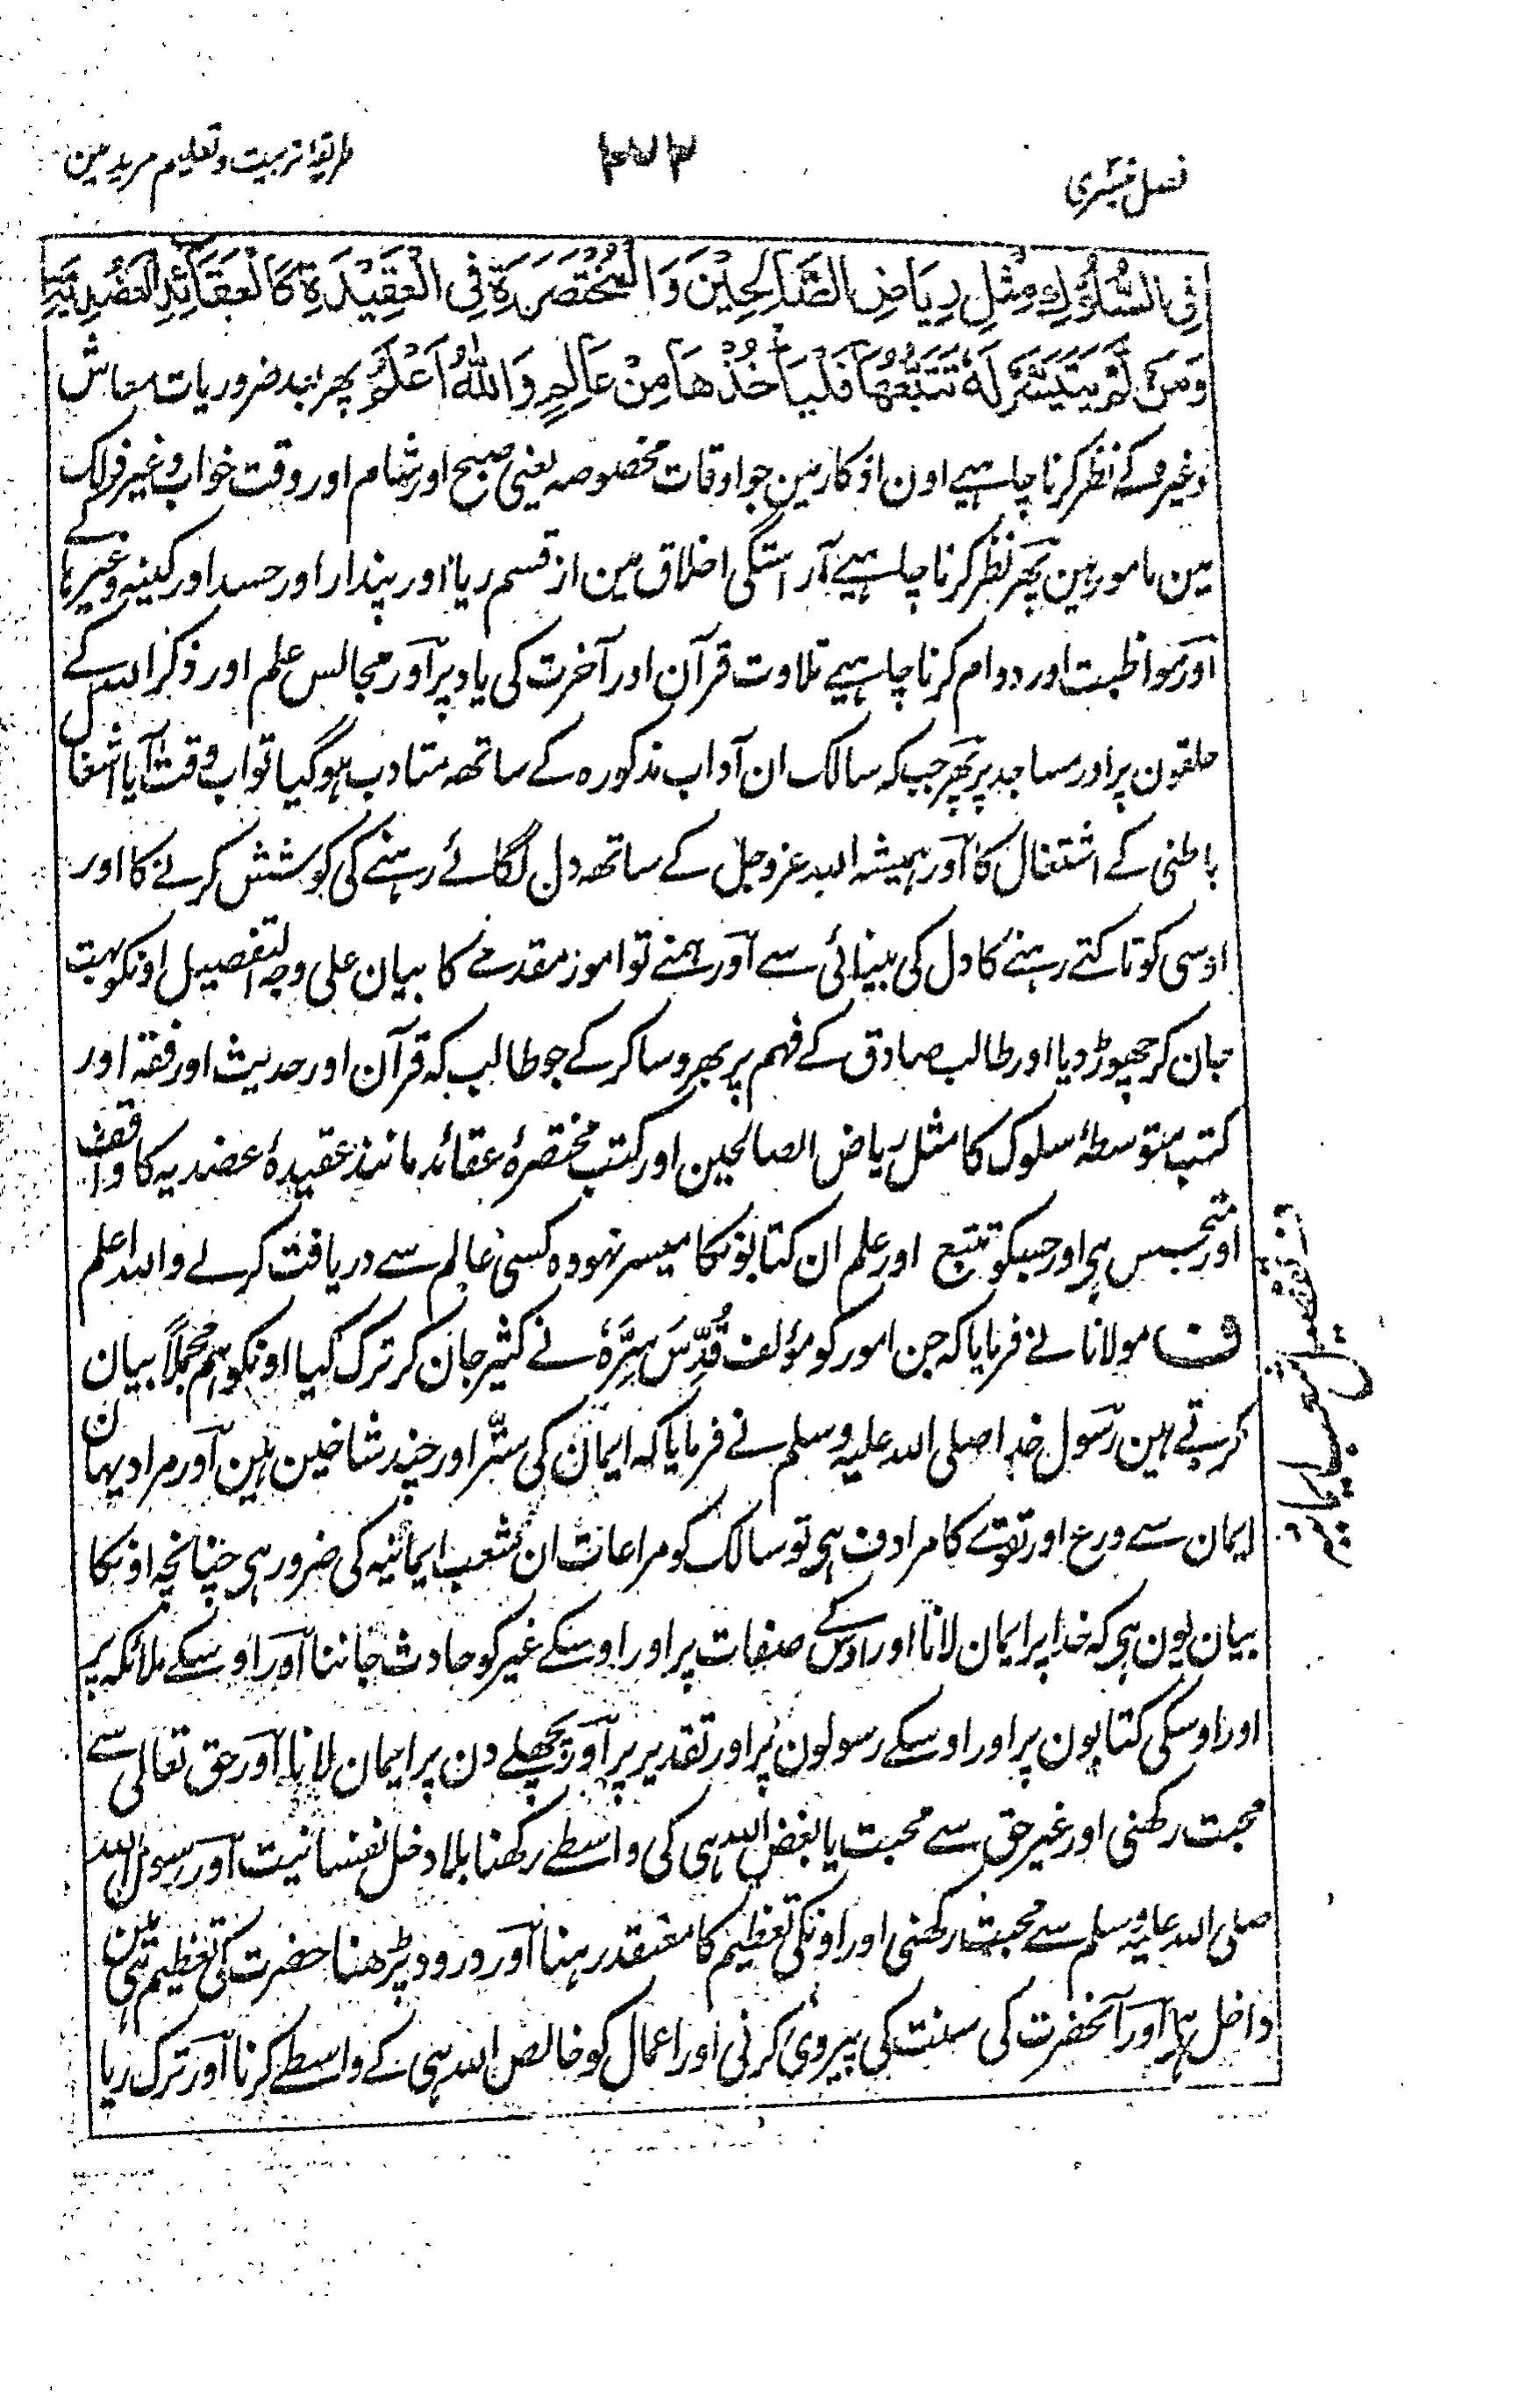 فصل تیسری
طریقۂ تربیت و تعلیم مریدین
فِی السُّلُوْكِ مِثْلِ رِیَاضِ الصَّالِحِیْنَ وَالْمُخْتَصَرَةِ فِی الْعَقِیْدَةِ كَالْعَقَآئِدِ الْعَضُدِیَّةِ
وَمَنْ لَّمْ یَتَیَسَّرْ لَهٗ تَتَبُّعُهَا فَلْیَأْخُذْهَا مِنْ عَالِمٍ وَاللّٰهُ اَعْلَمُ پھر بعد ضروریات معاش
وغیرہ کے نظر کرنا چاہیے اون اذکار مین جو اوقات مخصوصہ یعنی صبح اور شام اور وقت خواب وغیر ذلک کے
مین مامور ہین پھر نظر کرنا چاہیے آراستگی اخلاق مین از قسم ریا اور پندار اور حسد اور کینہ وغیرہا
اور مواظبت اور دوام کرنا چاہیے تلاوت قرآن اور آخرت کی یاد پر اور مجالس علم اور ذکر اللہ کے
حلقون پر اور مساجد پر پھر جب کہ سالک ان آداب مذکورہ کے ساتھ متادب ہوگیا تو اب وقت آیا اشغال
باطنی کے اشتغال کا اور ہمیشہ اللہ عزوجل کے ساتھ دل لگائے رہنے کی کوشش کرنے کا اور
اوسی کو تاکتے رہنے کا دل کی بینائی سے اور ہمنے تو امور مقدمے کا بیان علی وجہ التفصیل اونکو بہت
جان کر چھوڑ دیا اور طالب صادق کے فہم پر بھروسا کرکے جو طالب کہ قرآن اور حدیث اور فقہ اور
کتب متوسطۂ سلوک کا مثل ریاض الصالحین اور کتب مختصرۂ عقائد مانند عقیدۂ عضدیہ کا واقف
اور متجسس ہی اور جسکو تتبع اور علم ان کتابونکا میسر نہو وہ کسی عالم سے دریافت کرلے واللہ اعلم
ف مولانا نے فرمایا کہ جن امور کو مؤلف قُدِّسَ سِرُّهٗ نے کثیر جان کر ترک کیا اونکو ہم مجملاً بیان
کرتے ہین رسول خدا صلی اللہ علیہ وسلم نے فرمایا کہ ایمان کی ستّر اور چند شاخین ہین اور مراد یہان
ایمان سے ورع اور تقوے کا مرادف ہی تو سالک کو مراعات ان شعب ایمانیہ کی ضرور ہی چنانچہ اونکا
بیان یون ہی کہ خدا پر ایمان لانا اور اوسکے صفات پر اور اوسکے غیر کو حادث جاننا اور اوسکے ملائکہ پر
اور اوسکی کتابون پر اور اوسکے رسولون پر اور تقدیر پر اور پچھلے دن پر ایمان لانا اور حق تعالی سے
محبت رکھنی اور غیر حق سے محبت یا بغض اللہ ہی کی واسطے رکھنا بلا دخل نفسانیت اور رسول اللہ
صلی اللہ علیہ وسلم سے محبت رکھنی اور اونکی تعظیم کا معتقد رہنا اور درود پڑھنا حضرت کی تعظیم ہی مین
داخل ہا اور آنحضرت کی سنت کی پیروی کرنی اور اعمال کو خالص اللہ ہی کے واسطے کرنا اور ترک ریا